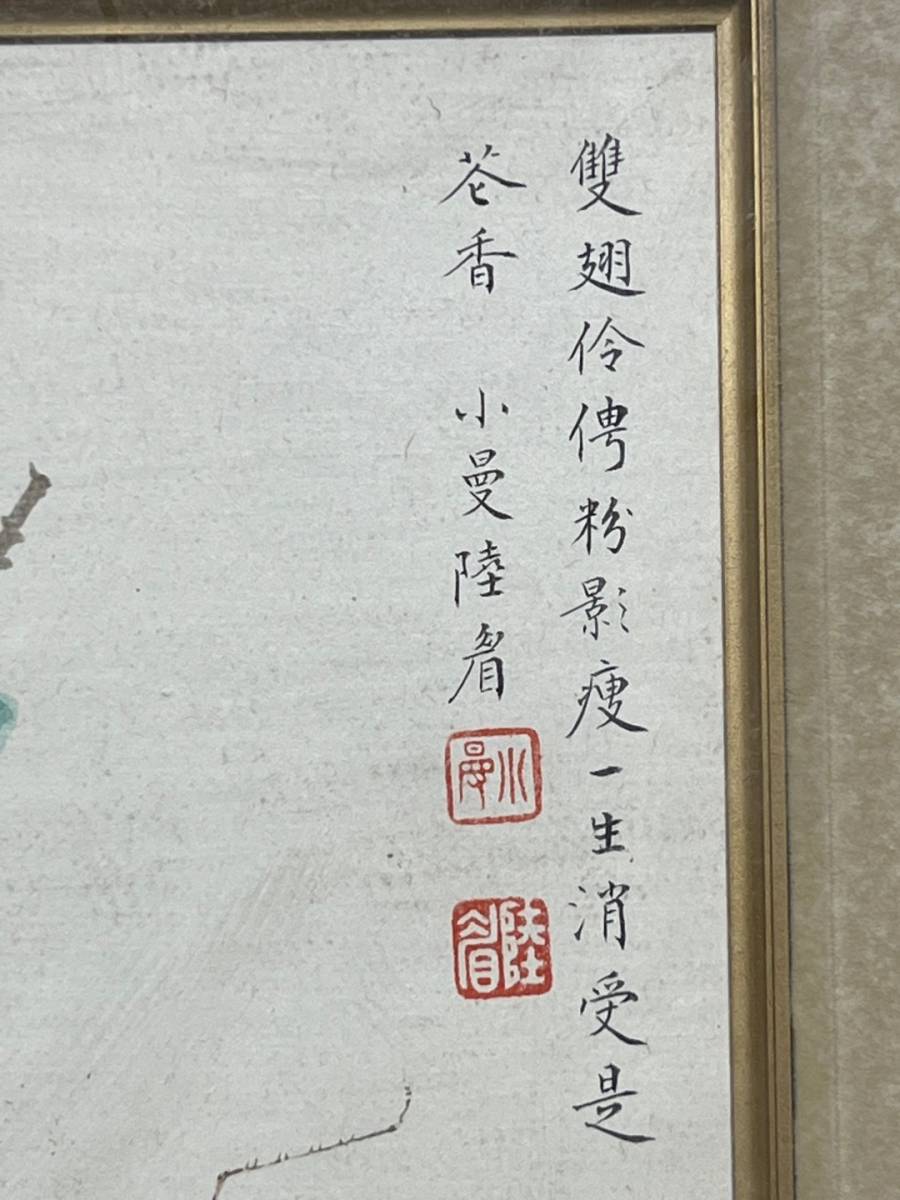 雙翅伶俜粉影瘦一生消受是
苍香 小曼陸眉
小曼
陸眉